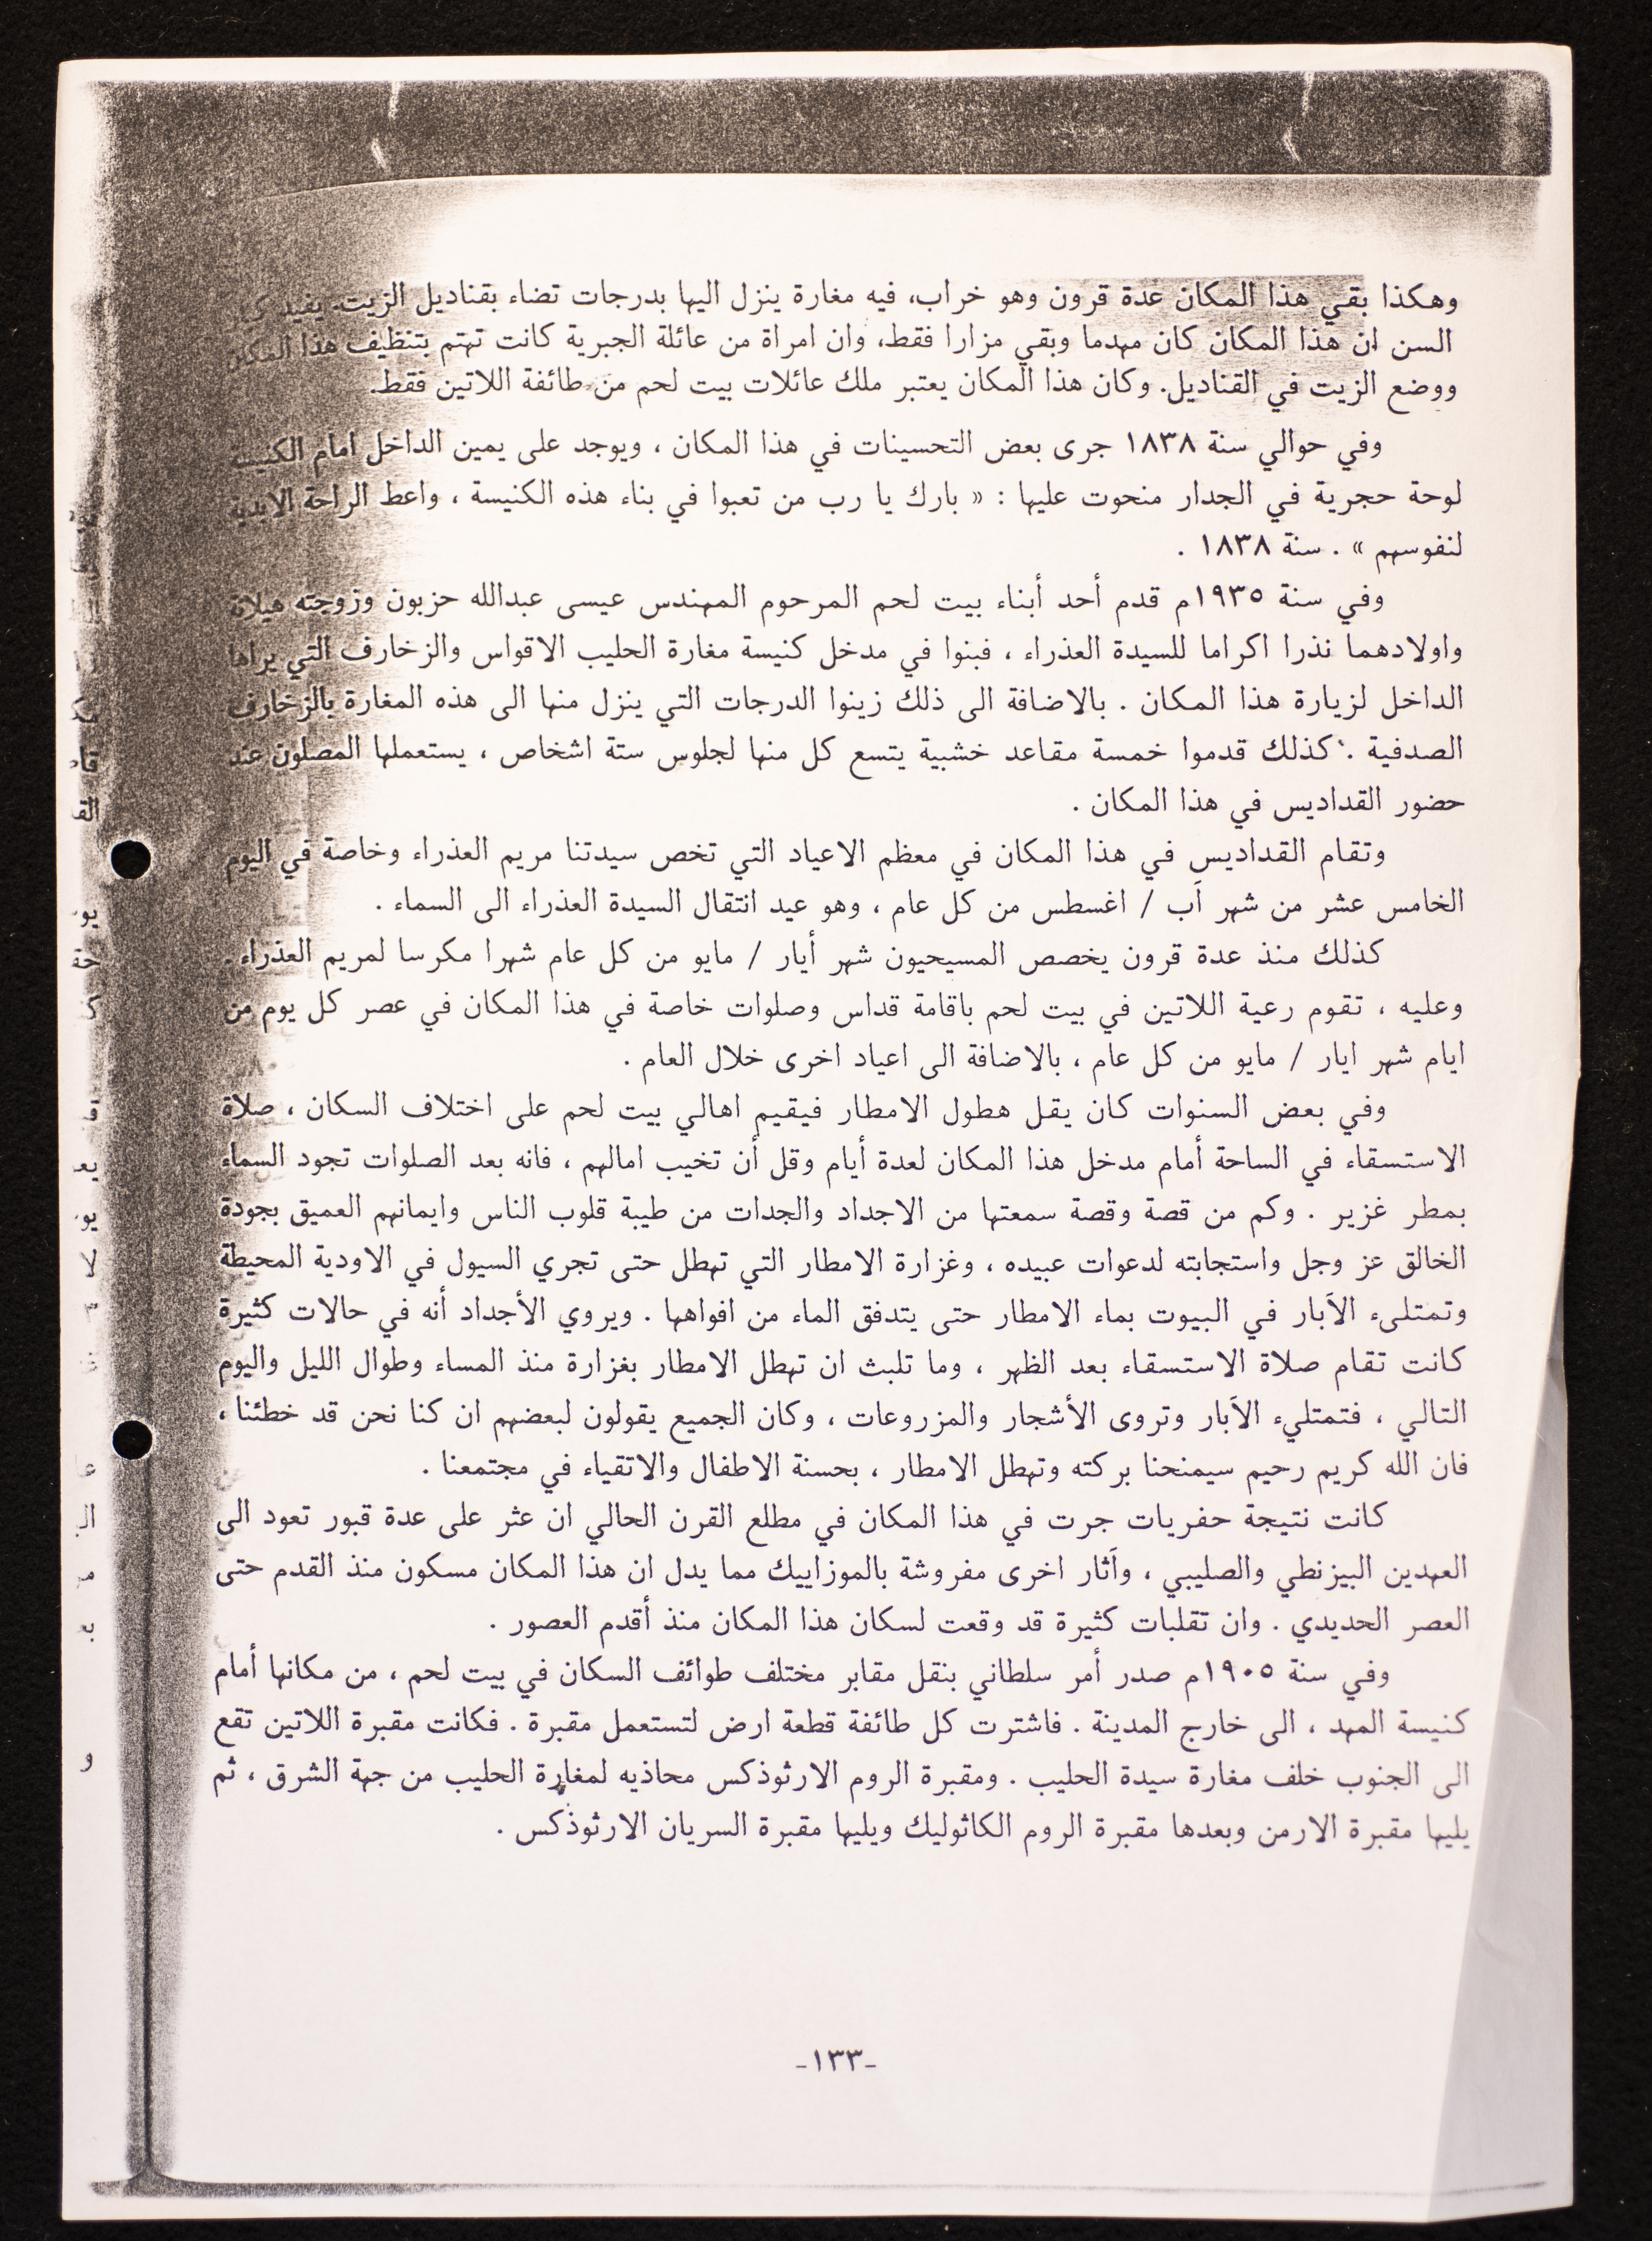 وهكذا بقي هذا المكان عدة قرون وهو خراب، فيه مغارة ينزل اليها بدرجات تضاء بقناديل الزيت. يفيد
السن ان هذا المكان كان مهدما وبقي مزارا فقط، وان امراة من عائلة الجبرية كانت تهتم بتنظيف هذا المكان
ووضع الزيت في القناديل. وكان هذا المكان يعتبر ملك عائلات بيت لحم من طائفة اللاتين فقط.
وفي حوالي سنة ١٨٣٨ جرى بعض التحسينات في هذا المكان ، ويوجد على يمين الداخل امام الكنيسة
لوحة حجرية في الجدار منحوت عليها : « بارك يا رب من تعبوا في بناء هذه الكنيسة ، واعط الراحة الابدية
لنفوسهم » . سنة ١٨٣٨ .
وفي سنة ١٩٣٥م قدم أحد أبناء بيت لحم المرحوم المهندس عيسى عبدالله حزبون وزوجته هيلانة
واولادهما نذرا اكراما للسيدة العذراء ، فبنوا في مدخل كنيسة مغارة الحليب الاقواس والزخارف التي يراها
الداخل لزيارة هذا المكان . بالاضافة الى ذلك زينوا الدرجات التي ينزل منها الى هذه المغارة بالزخارف
الصدفية . كذلك قدموا خمسة مقاعد خشبية يتسع كل منها لجلوس ستة اشخاص ، يستعملها المصلون عند
حضور القداديس في هذا المكان .
وتقام القداديس في هذا المكان في معظم الاعياد التي تخص سيدتنا مريم العذراء وخاصة في اليوم
الخامس عشر من شهر آب / اغسطس من كل عام ، وهو عيد انتقال السيدة العذراء الى السماء .
كذلك منذ عدة قرون يخصص المسيحيون شهر أيار / مايو من كل عام شهرا مكرسا لمريم العذراء .
وعليه ، تقوم رعية اللاتين في بيت لحم باقامة قداس وصلوات خاصة في هذا المكان في عصر كل يوم من
ايام شهر ايار / مايو من كل عام ، بالاضافة الى اعياد اخرى خلال العام .
وفي بعض السنوات كان يقل هطول الامطار فيقيم اهالي بيت لحم على اختلاف السكان ، صلاة
الاستسقاء في الساحة أمام مدخل هذا المكان لعدة أيام وقل أن تخيب امالهم ، فانه بعد الصلوات تجود السماء
بمطر غزير . وكم من قصة وقصة سمعتها من الاجداد والجدات من طيبة قلوب الناس وايمانهم العميق بجودة
الخالق عز وجل واستجابته لدعوات عبيده ، وغزارة الامطار التي تهطل حتى تجري السيول في الاودية المحيطة
وتمتلىء الآبار في البيوت بماء الامطار حتى يتدفق الماء من افواهها . ويروي الأجداد أنه في حالات كثيرة
كانت تقام صلاة الاستسقاء بعد الظهر ، وما تلبث ان تهطل الامطار بغزارة منذ المساء وطوال الليل واليوم
التالي ، فتمتليء الآبار وتروى الأشجار والمزروعات ، وكان الجميع يقولون لبعضهم ان كنا نحن قد خطئنا ،
فان الله كريم رحيم سيمنحنا بركته وتهطل الامطار ، بحسنة الاطفال والاتقياء في مجتمعنا .
كانت نتيجة حفريات جرت في هذا المكان في مطلع القرن الحالي ان عثر على عدة قبور تعود الى
العهدين البيزنطي والصليبي ، وآثار اخرى مفروشة بالموزاييك مما يدل ان هذا المكان مسكون منذ القدم حتى
العصر الحديدي . وان تقلبات كثيرة قد وقعت لسكان هذا المكان منذ أقدم العصور .
وفي سنة ١٩٠٥م صدر أمر سلطاني بنقل مقابر مختلف طوائف السكان في بيت لحم ، من مكانها أمام
كنيسة المهد ، الى خارج المدينة . فاشترت كل طائفة قطعة ارض لتستعمل مقبرة . فكانت مقبرة اللاتين تقع
الى الجنوب خلف مغارة سيدة الحليب . ومقبرة الروم الارثوذكس محاذيه لمغارة الحليب من جهة الشرق ، ثم
يليها مقبرة الارمن وبعدها مقبرة الروم الكاثوليك ويليها مقبرة السريان الارثوذكس .
-١٣٣-